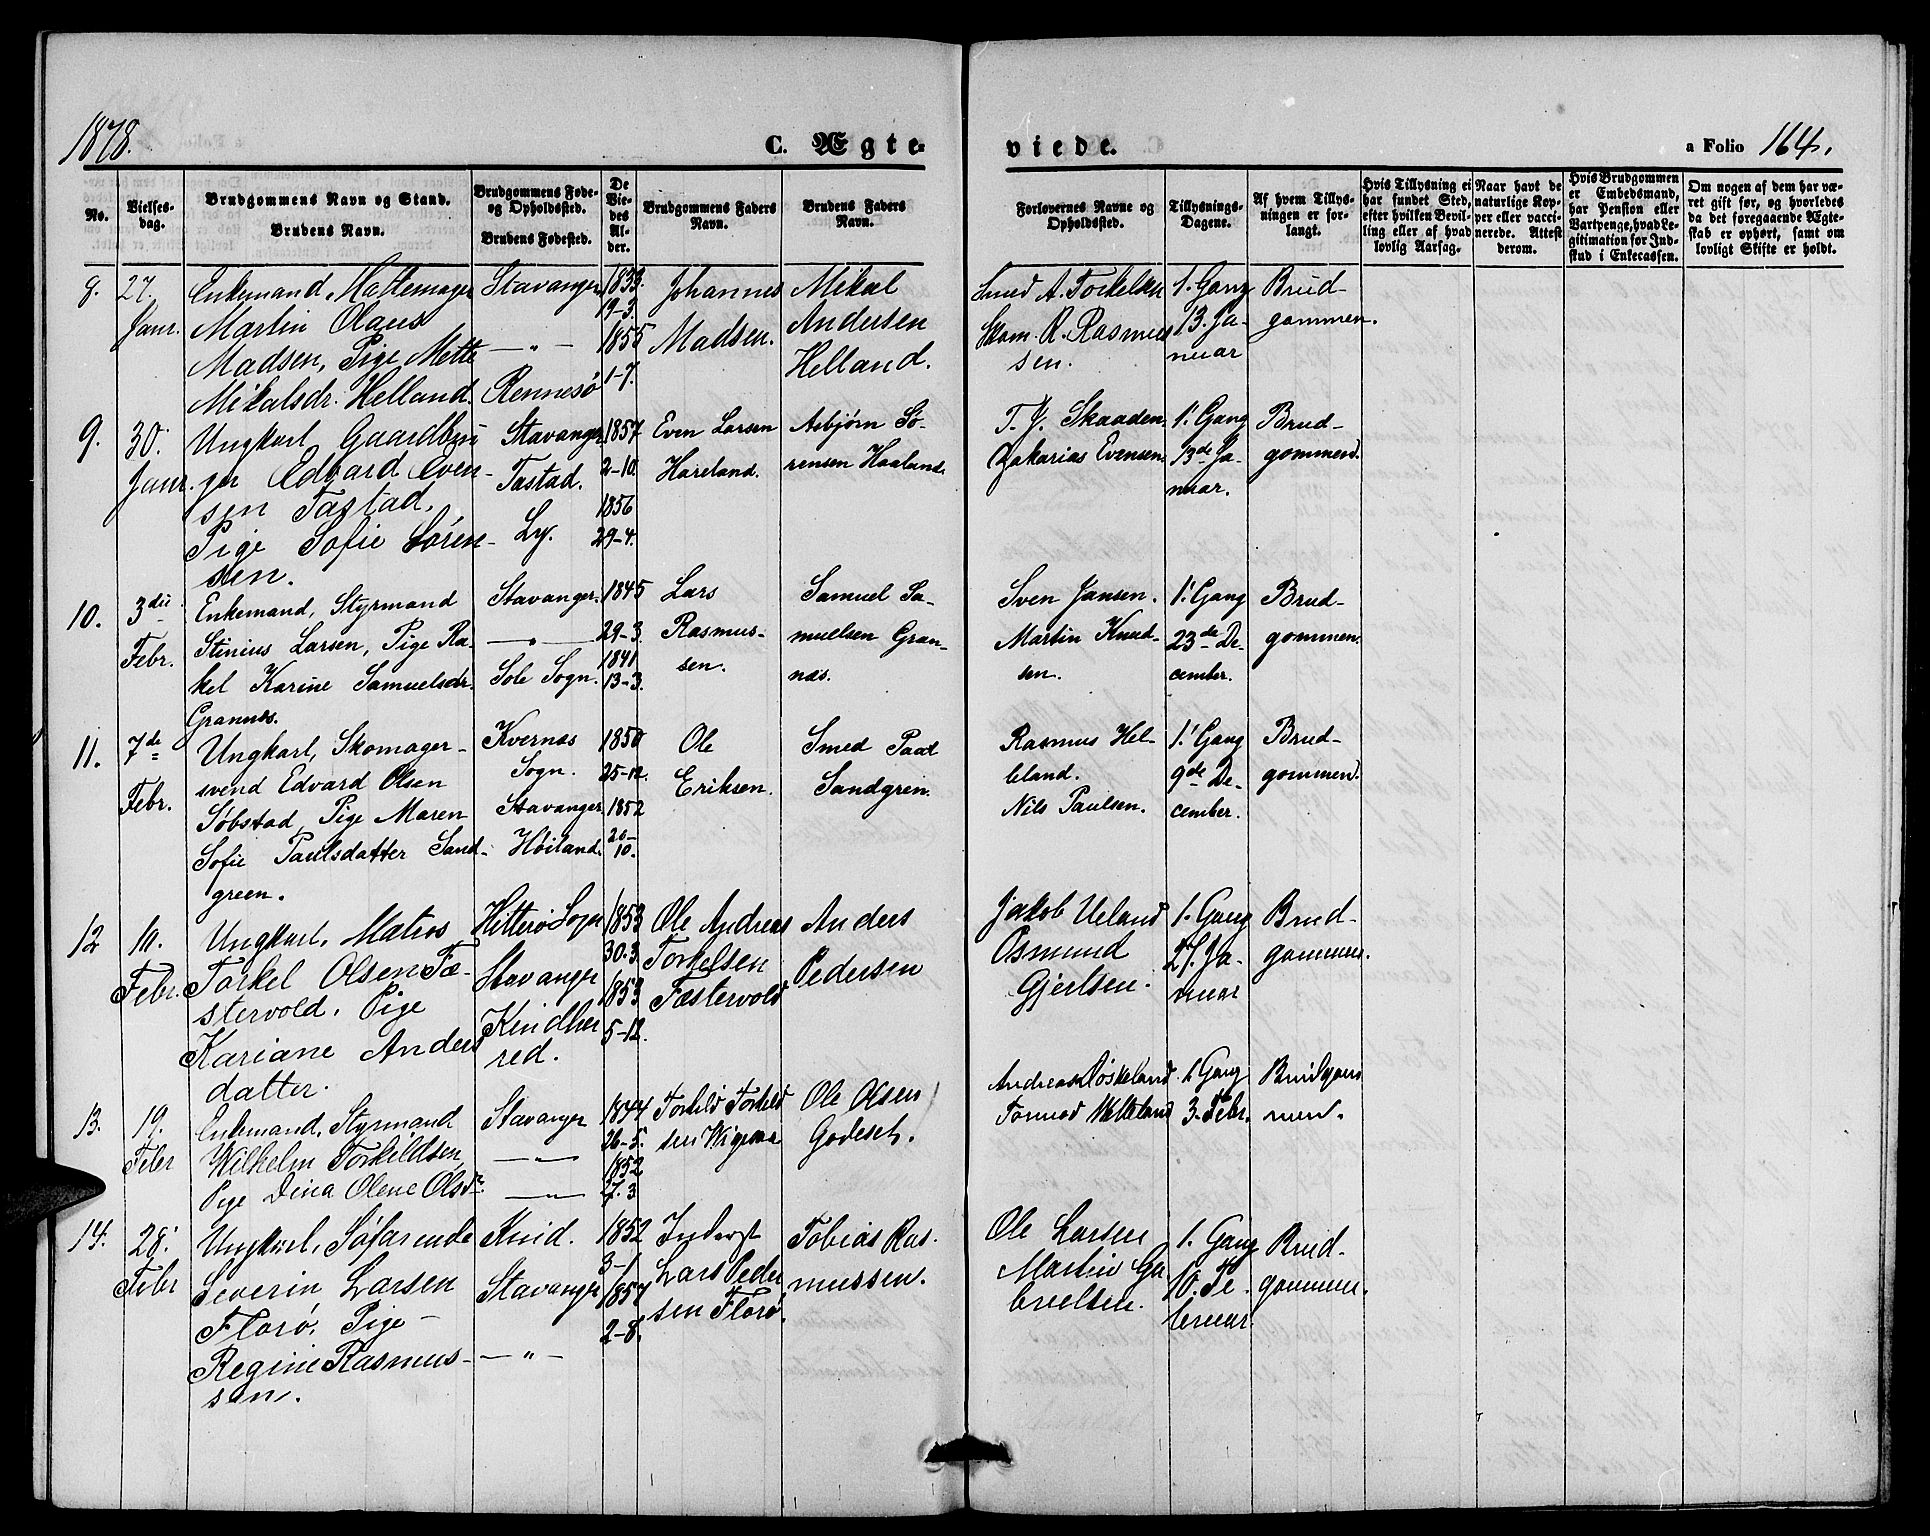 1878.
C. Ægte-
viede.
a Folio 164.
No.
Vielses-
dag.
Brudgommens Navn og Stand.
Brudens Navn.
Brudgommens Føde-
og Opholdssted.
Brudens Fødested.
De
Vie-
des
Al-
der.
Brudgommens Faders
Navn.
Brudens Faders
Navn.
Forlovernes Navne og
Opholdssted.
Tillysnings-
Dagene.
Af hvem Tillys-
ningen er for-
langt.
Hvis Tillysning ei
har fundet Sted,
efter hvilken Bevil-
ling eller af hvad
lovlig Aarsag.
Naar havt de
naturlige Kop-
per eller vacci-
nerede. Attest
derom.
Hvis Brudgommen
er Embedsmand,
har Pension eller
Vartpenge, hvad Le-
gitimation for Ind-
skud i Enkecassen.
Om nogen af dem har væ-
ret gift før, og hvorledes
da det foregaaende Ægte-
skab er ophørt, samt om
lovligt Skifte er holdt.
8.
27.
Janr.
Enkemand, Hattemager
Martin Olaus
Madsen, Pige Mette
Mikalsdr. Helland.
Stavanger
— " —
Rennesö
1833
19-3.
1855
1-7.
Johannes
Madsen.
Mikal
Andersen
Helland.
Smed A. Torkelsen
Skom. R. Rasmus
sen.
1. Gang
13. Ja-
nuar
Brud-
gommen.
9.
30.
Janr.
Ungkarl, Gaardbru-
ger Edvard Even-
sen Tastad,
Pige Sofie Sören-
sen.
Stavanger
Tastad.
Ly.
1857
2-10.
1856
29-4.
Even Larsen
Hareland.
Asbjörn Sö-
rensen Haaland.
T. J. Skaaden.
Zakarias Evensen.
1. Gang
13de Ja-
nuar.
Brud-
gommen.
10.
3die
Febr.
Enkemand, Styrmand
Stinius Larsen, Pige Ra-
kel Karine Samuelsdr.
Grannes.
Stavanger.
— " —
Sole Sogn.
1845
29-3.
1841
13-3.
Lars
Rasmus-
sen.
Samuel Sa-
muelsen Gran-
næs.
Sven Jansen.
Martin Knud-
sen.
1. Gang
23de De-
cember.
Brud-
gommen.
11.
7de
Febr.
Ungkarl, Skomager-
svend Edvard Olsen
Söbstad, Pige Maren
Sofie Paulsdatter Sand-
green.
Kvernæs
Sogn.
Stavanger
Höiland.
1850
25-12.
1852
20-
10.
Ole
Eriksen.
Smed Paal
Sandgren.
Rasmus Hel-
leland.
Nils Paulsen.
1. Gang
9de De-
cember.
Brud-
gommen.
12
10.
Febr.
Ungkarl, Matros
Torkel Olsen Fæ-
stervold, Pige
Kariane Anders
datter.
Hitterö Sogn
Stavanger
Kindher
red.
1853
30.3.
1853
5-12.
Ole Andreas
Torkelsen
Fæstervold
Anders
Pedersen
Jakob Ueland
Osmund
Gjertsen.
1. Gang
27. Ja-
nuar
Brud-
gommen.
13.
19.
Febr
Enkemand, Styrmand
Wilhelm Torkildsen,
Pige Dina Olene Olsdr.
Stavanger
— " —
— " —
1844
26-5.
1852
7.3
Torkild Torkild
sen
Ole Olsen
Godeset.
Andreas
Tormod
1. Gang
3. Febr.
Brudgom
men.
14.
28.
Febr
Ungkarl, Söfarende
Severin Larsen
Florö, Pige
Regine Rasmus-
sen.
Kvid.
Stavanger
— " —
1852
3-1
1857
2-8.
Inderst
Lars Peder
sen Florö.
Tobias Ras-
mussen.
Ole Larsen
Martin Ga
brielsen.
1. Gang
10. Fe
bruar.
Brud-
gommen.